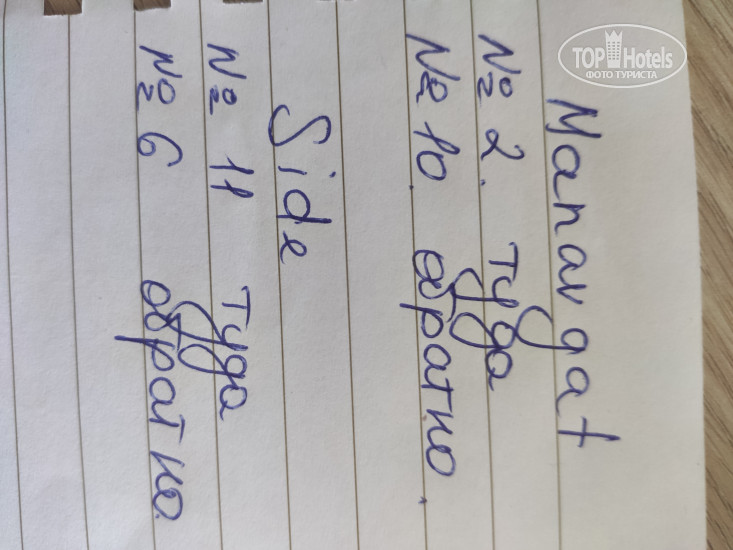 Manavgat
№ 2. туда
№ 10. обратно.
Side
№ 11 туда
№ 6 обратно.
TOP Hotels
ФОТО ТУРИСТА